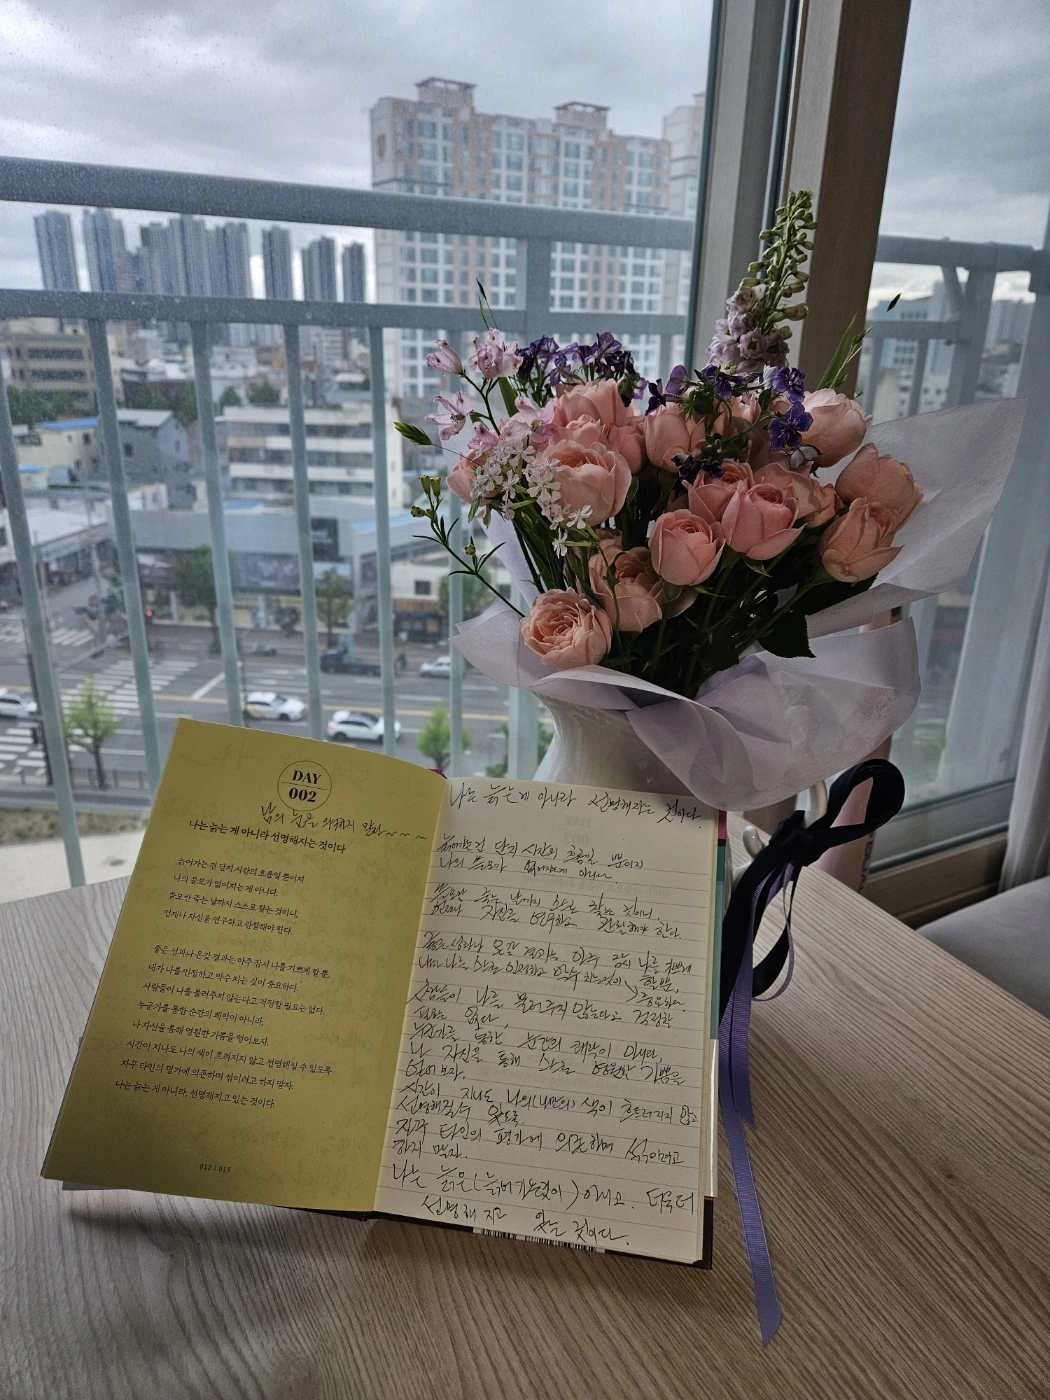 DAY
002
남의 눈을 의식하지 말라~~~
나는 늙는 게 아니라 선명해지는 것이다
늙어가는 건 단지 시간의 흐름일 뿐이지
나의 쓸모가 없어지는 게 아니다.
쓸모란 죽는 날까지 스스로 찾는 것이니,
언제나 자신을 연구하고 관찰해야 한다.
좋은 성과나 온갖 결과는 아주 잠시 나를 기쁘게 할 뿐,
내가 나를 인정하고 박수 치는 것이 중요하다.
사람들이 나를 불러주지 않는다고 걱정할 필요는 없다.
누군가를 통한 순간의 쾌락이 아니라,
나 자신을 통해 영원한 기쁨을 얻어보자.
시간이 지나도 나의 색이 흐려지지 않고 선명해질 수 있도록
자꾸 타인의 평가에 의존하며 섞이려고 하지 말자.
나는 늙는 게 아니라, 선명해지고 있는 것이다.
012 / 013
나는 늙는게 아니라 선명해지는 것이다.
늙어가는건 단지 시간의 흐름일 뿐이지
나의 쓸모가 없어지는게 아니다
쓸모란 죽는 날까지 스스로 찾는 것이니,
언제나 자신을 연구하고 관찰해야 한다.
결과는 아주 잠시 나를 기쁘게
할뿐,
내가 나를 스스로 인정하고 박수 치는것이
중요하다.
사람들이 나를 불러주지 않는다고 걱정할
필요는 없다.
누군가를 통한 순간의 쾌락이 아니라,
나 자신을 통해 스스로 영원한 기쁨을
얻어보자.
시간이 지나도 나의(나만의) 색이 흐트러지지 않고
선명해질수 있도록
자꾸 타인의 평가에 의존하며 섞이려고
하지 말자.
나는 늙은(늙어가는것이) 아니고. 더욱더
선명해 지고 있는 것이다.